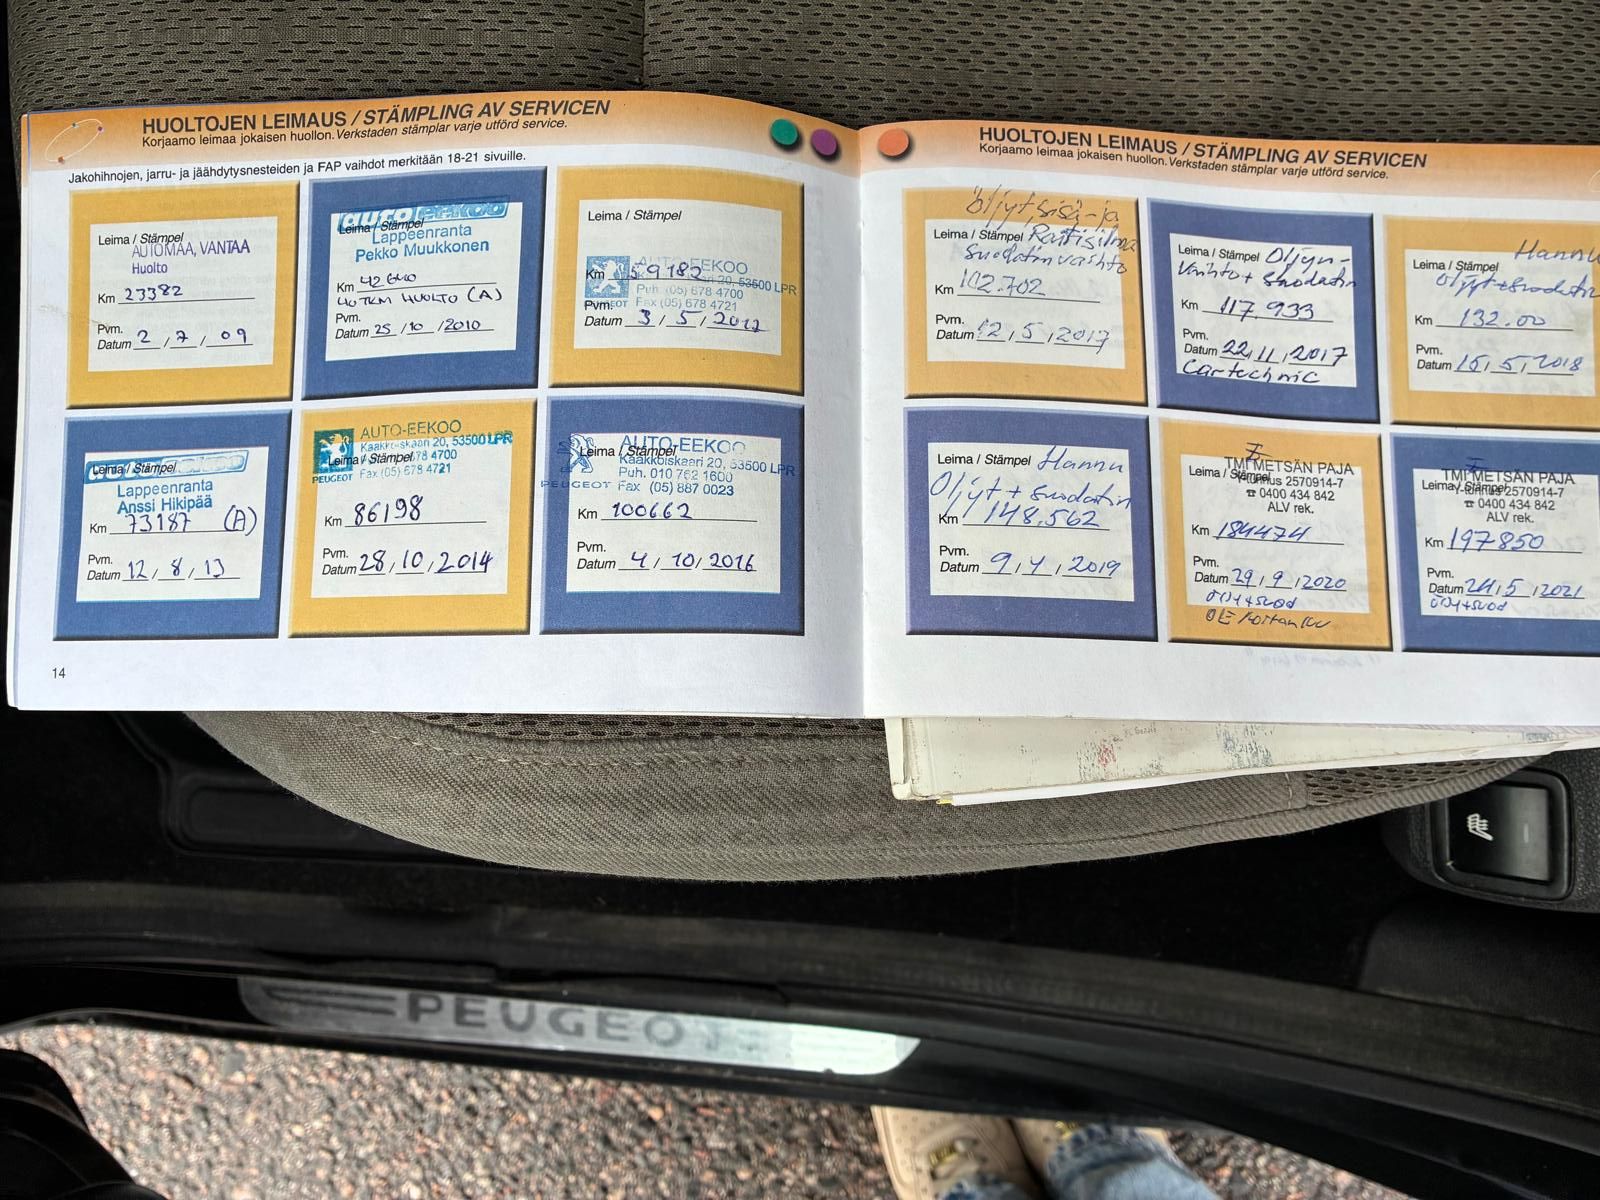 HUOLTOJEN LEIMAUS / STÄMPLING AV SERVICEN
Korjaamo leimaa jokaisen huollon. Verkstaden stämplar varje utförd service.
Jakohihnojen, jarru- ja jäähdytysnesteiden ja FAP vaihdot merkitään 18-21 sivuille.
Leima / Stämpel
AUTOMAA, VANTAA
Huolto
Km 23382
Pvm.
Datum 2 / 7 / 09
Leima / Stämpel
Lappeenranta
Pekko Muukkonen
Km 42640
40TKM HUOLTO (A)
Pvm.
Datum 25 / 10 / 2010
Leima / Stämpel
AUTO-EEKOO
Km 59182
20, 53500 LPR
Puh. (05) 678 4700
PEUGEOT Fax (05) 678 4721
Pvm.
Datum 3 / 5 / 2012
Leima / Stämpel
Lappeenranta
Anssi Hikipää
Km 73187 (A)
Pvm.
Datum 12 / 8 / 13
AUTO-EEKOO
Kaakkoiskaari 20, 53500 LPR
Leima / Stämpel 678 4700
PEUGEOT Fax (05) 678 4721
Km 86198
Pvm.
Datum 28 / 10 / 2014
AUTO-EEKOO
Leima / Stämpel
Kaakkoiskaari 20, 53500 LPR
Puh. 010 762 1600
PEUGEOT Fax (05) 887 0023
Km 100662
Pvm.
Datum 4 / 10 / 2016
14
HUOLTOJEN LEIMAUS / STÄMPLING AV SERVICEN
Korjaamo leimaa jokaisen huollon. Verkstaden stämplar varje utförd service.
Öljyt, sisä- ja
Leima / Stämpel Raitisilma
suodatin vaihto
Km 102.702
Pvm.
Datum 12 / 5 / 2017
Leima / Stämpel Öljyn-
vaihto + suodatin
Km 117.933
Pvm.
Datum 22 / 11 / 2017
Cartechnic
Hannu
Leima / Stämpel
Öljyt + suodatin
Km 132.00
Pvm.
Datum 15 / 5 / 2018
Leima / Stämpel Hannu
Öljyt + suodatin
Km 148.562
Pvm.
Datum 9 / 4 / 2019
TMI METSÄN PAJA
Leima / Stämpel
Y-tunnus 2570914-7
☎ 0400 434 842
ALV rek.
Km 184474
Pvm.
Datum 29 / 9 / 2020
öljy+suod
TMI METSÄN PAJA
Leima / Stämpel
Y-tunnus 2570914-7
☎ 0400 434 842
ALV rek.
Km 197850
Pvm.
Datum 24 / 5 / 2021
öljy+suod
PEUGEOT